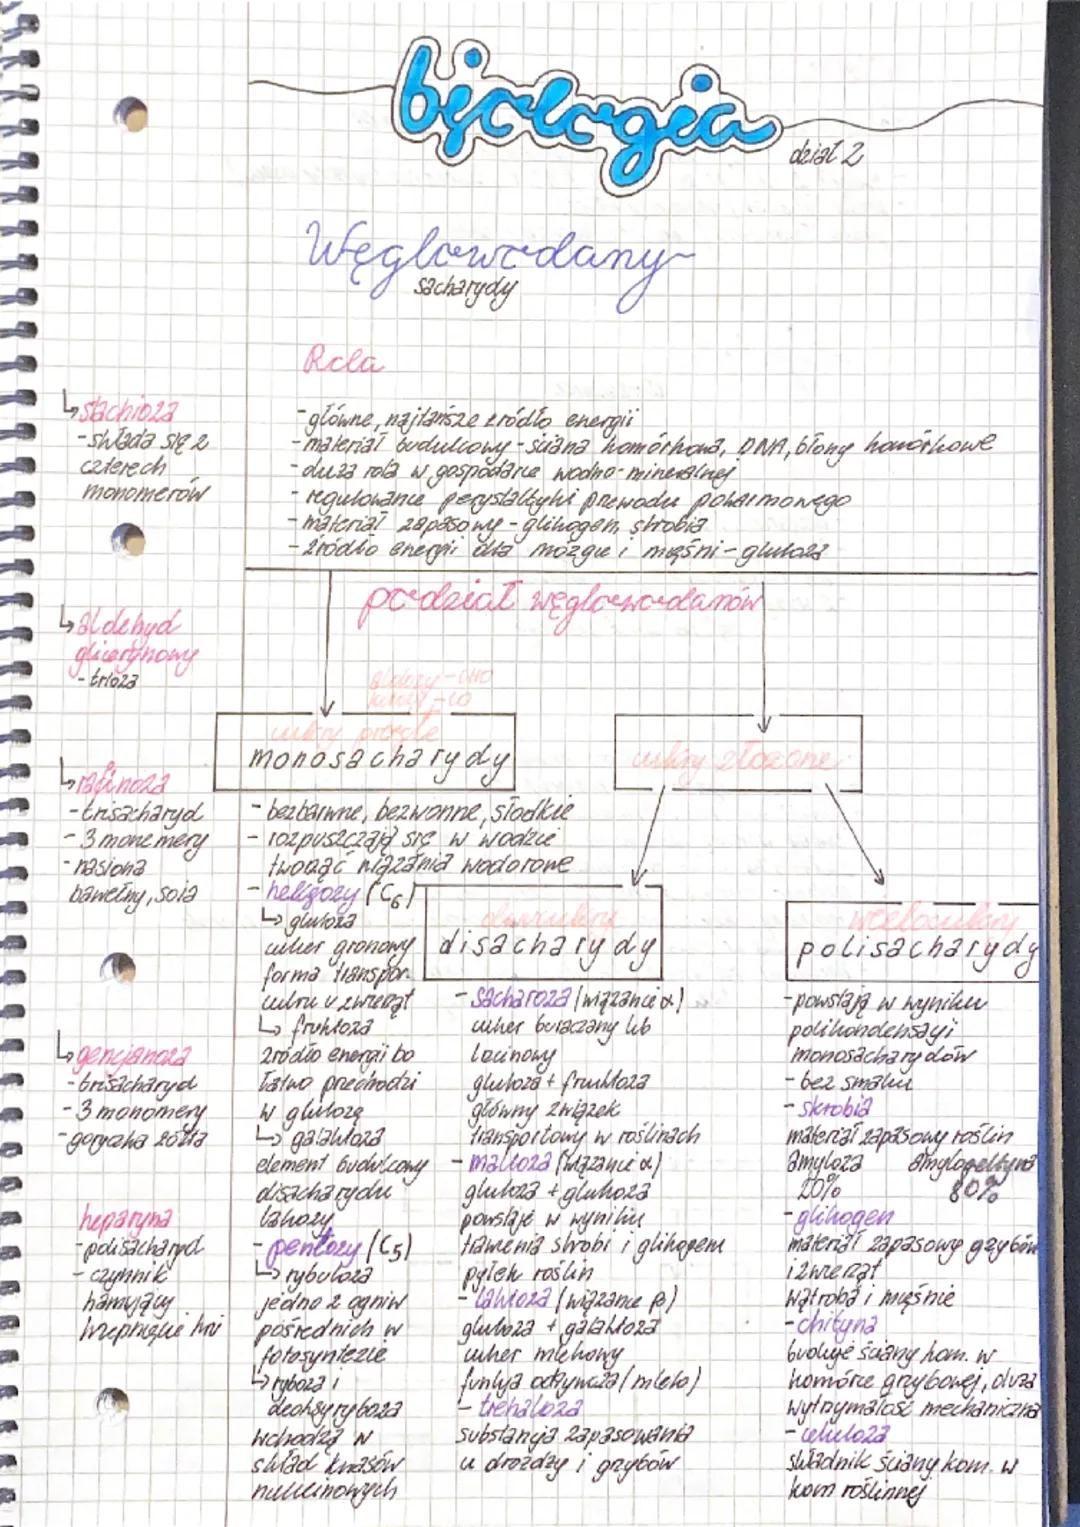 biologia
dział 2
Węglowodany
sacharydy
Rola
- główne, najtańsze źródło energii
- materiał budulcowy - ściana komórkowa, DNA, błony komórkowe
- duża rola w gospodarce wodno-mineralnej
- regulowanie perystaltyki przewodu pokarmowego
- materiał zapasowy - glikogen, skrobia
- źródło energii dla mózgu i mięśni - glukoza
↳ stachioza
- składa się z
czterech
monomerów
↳ aldehyd
glicerynowy
- trioza
↳ rafinoza
- trisacharyd
- 3 monomery
- nasiona
bawełny, soja
↳ gencjanoza
- trisacharyd
- 3 monomery
- goryczka żółta
heparyna
- polisacharyd
- czynnik
hamujący
krzepnięcie krwi
podział węglowodanów
aldozy - CHO
ketozy - CO
cukry proste
monosacharydy
- bezbarwne, bezwonne, słodkie
- rozpuszczają się w wodzie
tworząc wiązania wodorowe
- heksozy (C6)
↳ glukoza
cukier gronowy
forma transpor.
cukru u zwierząt
↳ fruktoza
źródło energii bo
łatwo przechodzi
w glukozę
↳ galaktoza
element budulcowy
disacharydu
laktozy
- pentozy (C5)
↳ rybuloza
jedno z ogniw
pośrednich w
fotosyntezie
↳ ryboza i
deoksyryboza
wchodzą w
skład kwasów
nukleinowych
cukry złożone
dwucukry
disacharydy
- sacharoza (wiązanie α)
cukier buraczany lub
trzcinowy
glukoza + fruktoza
główny związek
transportowy w roślinach
- maltoza (wiązanie α)
glukoza + glukoza
powstaje w wyniku
trawienia skrobi i glikogenu
pyłek roślin
- laktoza (wiązanie β)
glukoza + galaktoza
cukier mlekowy
funkcja odżywcza (mleko)
- trehaloza
substancja zapasowania
u drożdży i grzybów
wielocukry
polisacharydy
- powstają w wyniku
polikondensacji
monosacharydów
- bez smaku
- skrobia
materiał zapasowy roślin
amyloza amylopektyna
20% 80%
- glikogen
materiał zapasowy grzybów
i zwierząt
wątroba i mięśnie
- chityna
buduje ściany kom. w
komórce grzybowej, duża
wytrzymałość mechaniczna
- celuloza
składnik ściany kom. w
kom roślinnej